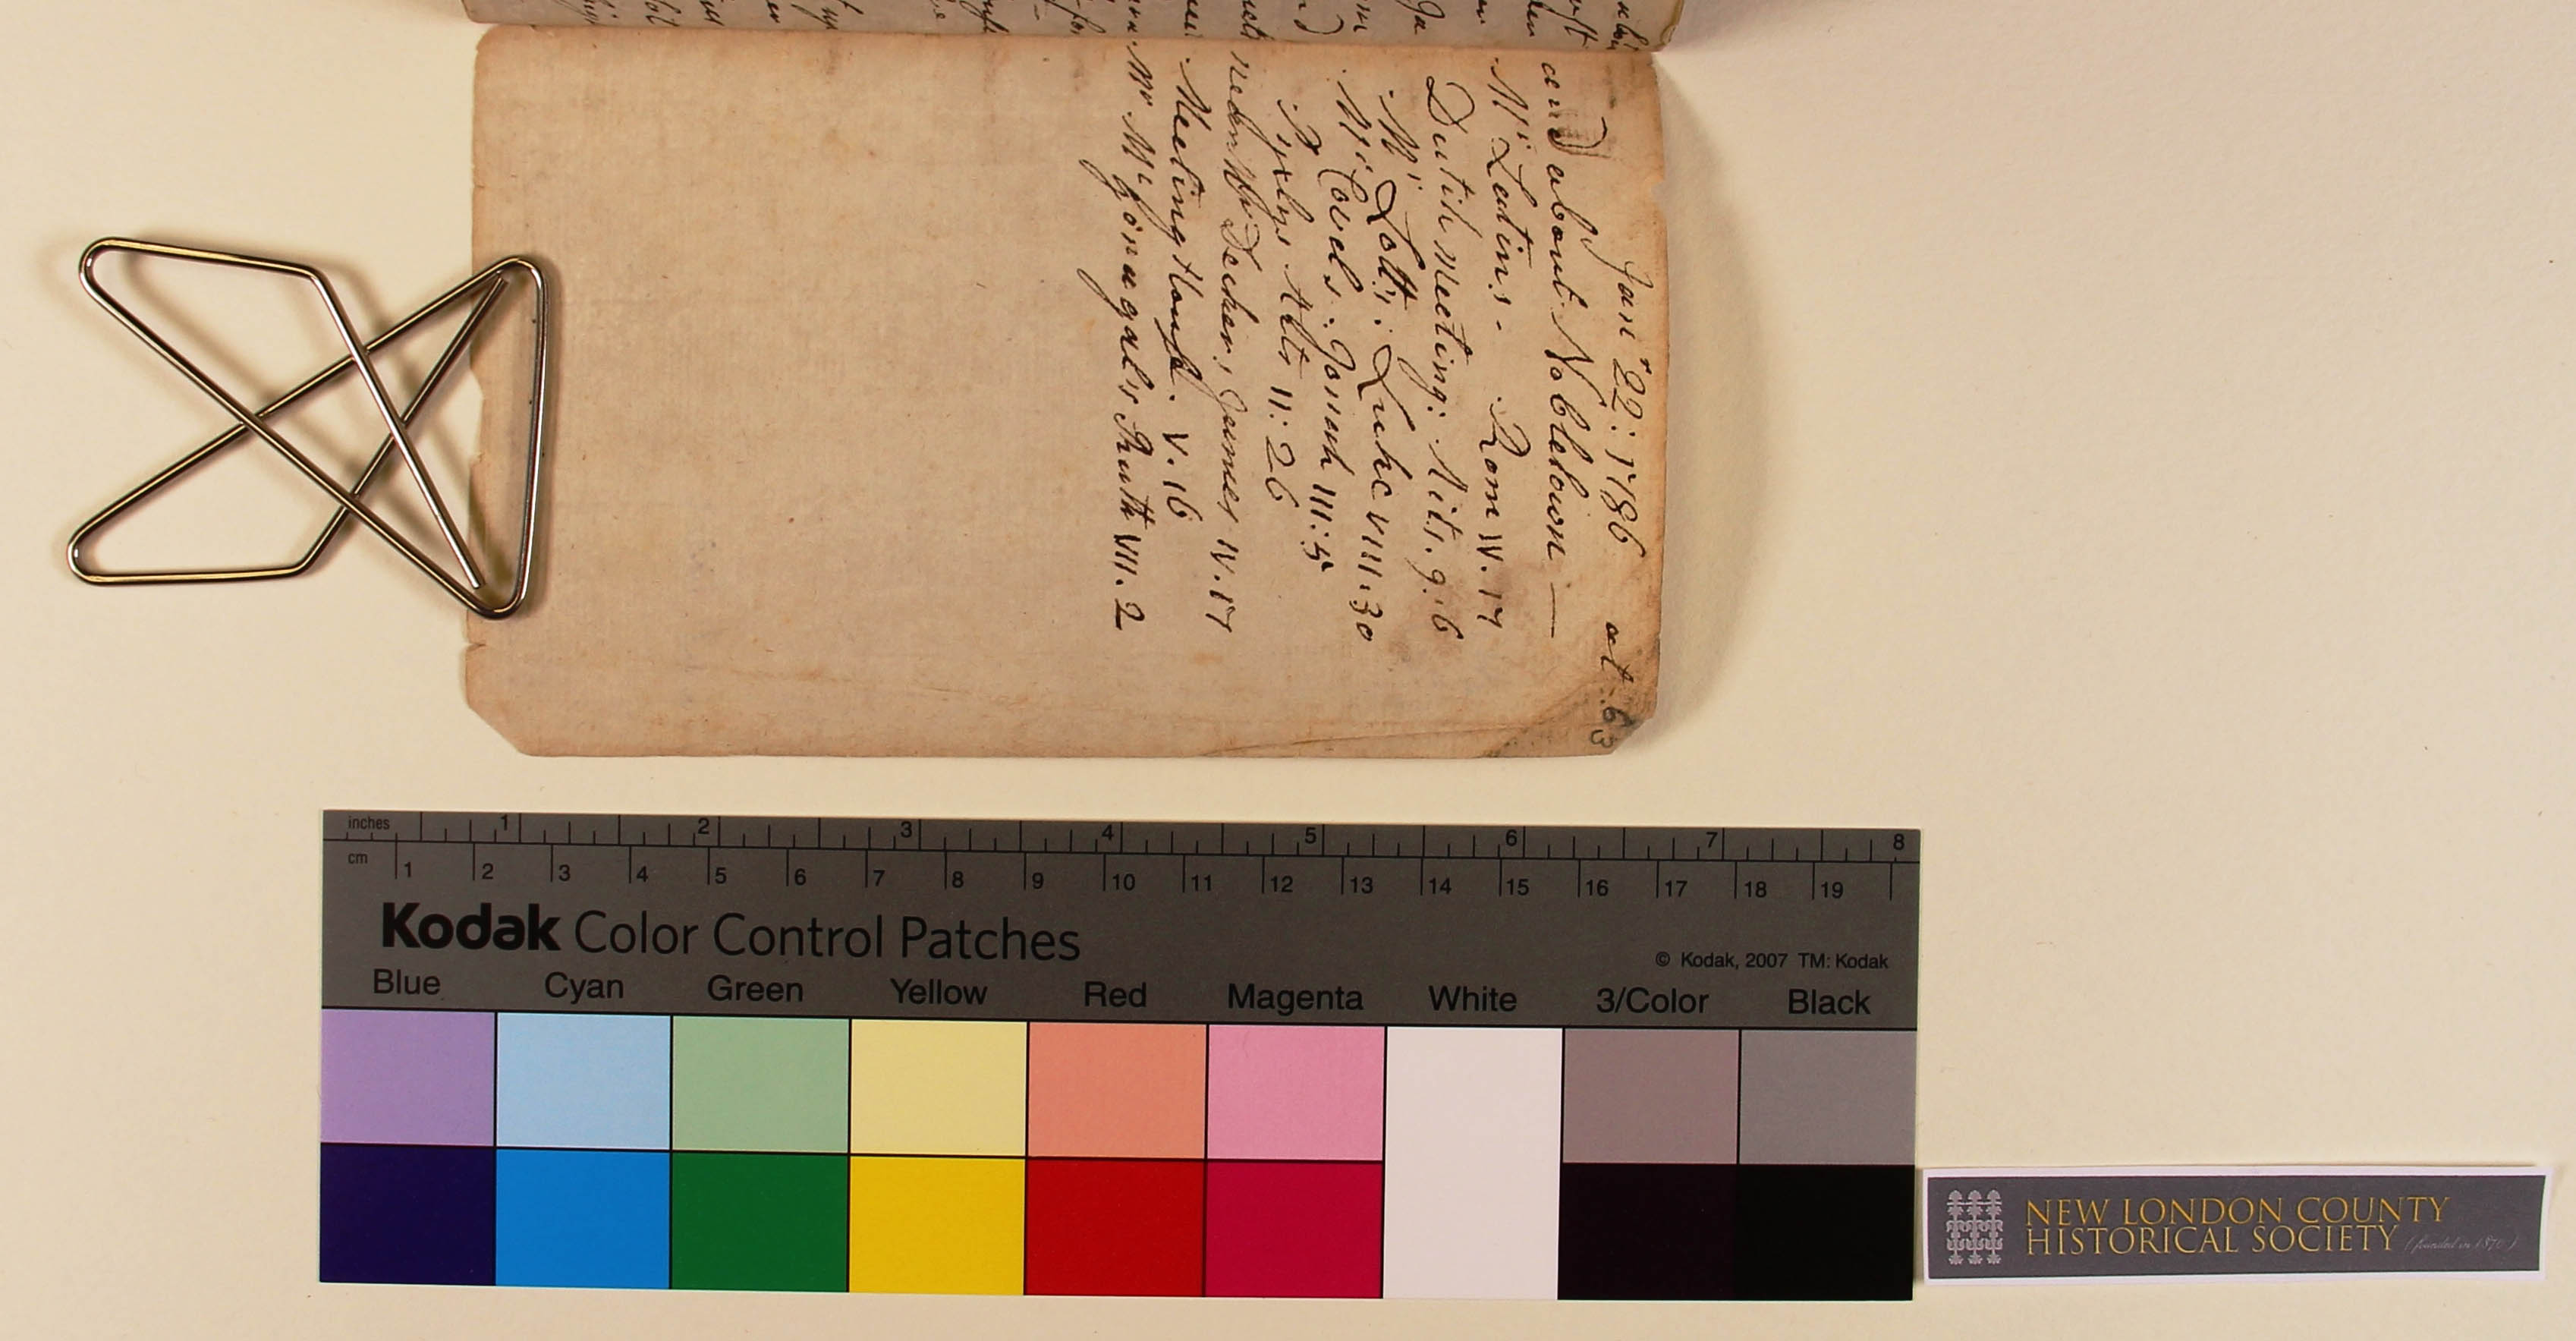 Jan.r 22: 1786 at 63
and about Nobletown —
Mr Latins - Rom IV. 17
Dutch meeting: Acts. 9:6
Mr Lotts: Luke VIII:30
Mr Covels: Jonah III:5
Acts 11:26
Mr Deckers James IV. 17
Meeting House. V. 16
Mr Mc Gonagals Ruth VII. 2
inches 1 2 3 4 5 6 7 8
cm 1 2 3 4 5 6 7 8 9 10 11 12 13 14 15 16 17 18 19
Kodak Color Control Patches
© Kodak, 2007 TM: Kodak
Blue Cyan Green Yellow Red Magenta White 3/Color Black
NEW LONDON COUNTY
HISTORICAL SOCIETY (founded in 1870)